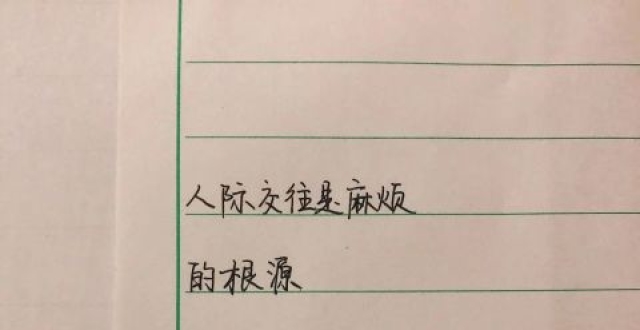 人际交往是麻烦
的根源